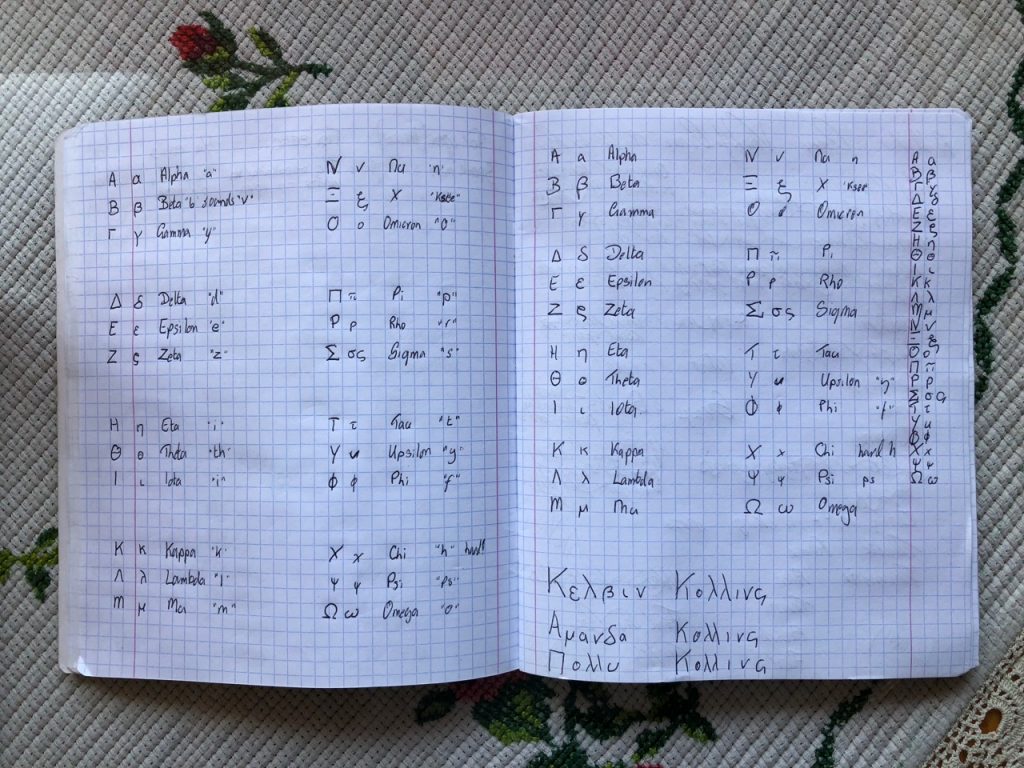 Α α Alpha "a"
Β β Beta "b" sounds "v"
Γ γ Gamma "y"
Δ δ Delta "d"
Ε ε Epsilon "e"
Ζ ζ Zeta "z"
Η η Eta "i"
Θ θ Theta "th"
Ι ι Iota "i"
Κ κ Kappa "k"
Λ λ Lambda "l"
Μ μ Mu "m"
Ν ν Nu "n"
Ξ ξ X "Ksee"
Ο ο Omicron "o"
Π π Pi "p"
Ρ ρ Rho "r"
Σ σς Sigma "s"
Τ τ Tau "t"
Υ υ Upsilon "y"
Φ φ Phi "f"
Χ χ Chi "h" hard
Ψ ψ Psi "ps"
Ω ω Omega "o"
Α α Alpha
Β β Beta
Γ γ Gamma
Δ δ Delta
Ε ε Epsilon
Ζ ζ Zeta
Η η Eta
Θ θ Theta
Ι ι Iota
Κ κ Kappa
Λ λ Lambda
Μ μ Mu
Ν ν Nu n
Ξ ξ X "Ksee
Ο ο Omicron
Π π Pi
Ρ ρ Rho
Σ σς Sigma
Τ τ Tau
Υ υ Upsilon "y"
Φ φ Phi "f"
Χ χ Chi hard h
Ψ ψ Psi ps
Ω ω Omega
Α α
Β β
Γ γ
Δ δ
Ε ε
Ζ ζ
Η η
Θ θ
Ι ι
Κ κ
Λ λ
Μ μ
Ν ν
Ξ ξ
Ο ο
Π π
Ρ ρ
Σ σς
Τ τ
Υ υ
Φ φ
Χ χ
Ψ ψ
Ω ω
Κελβιν Κολλινς
Αμανδα Κολλινς
Πολλυ Κολλινς